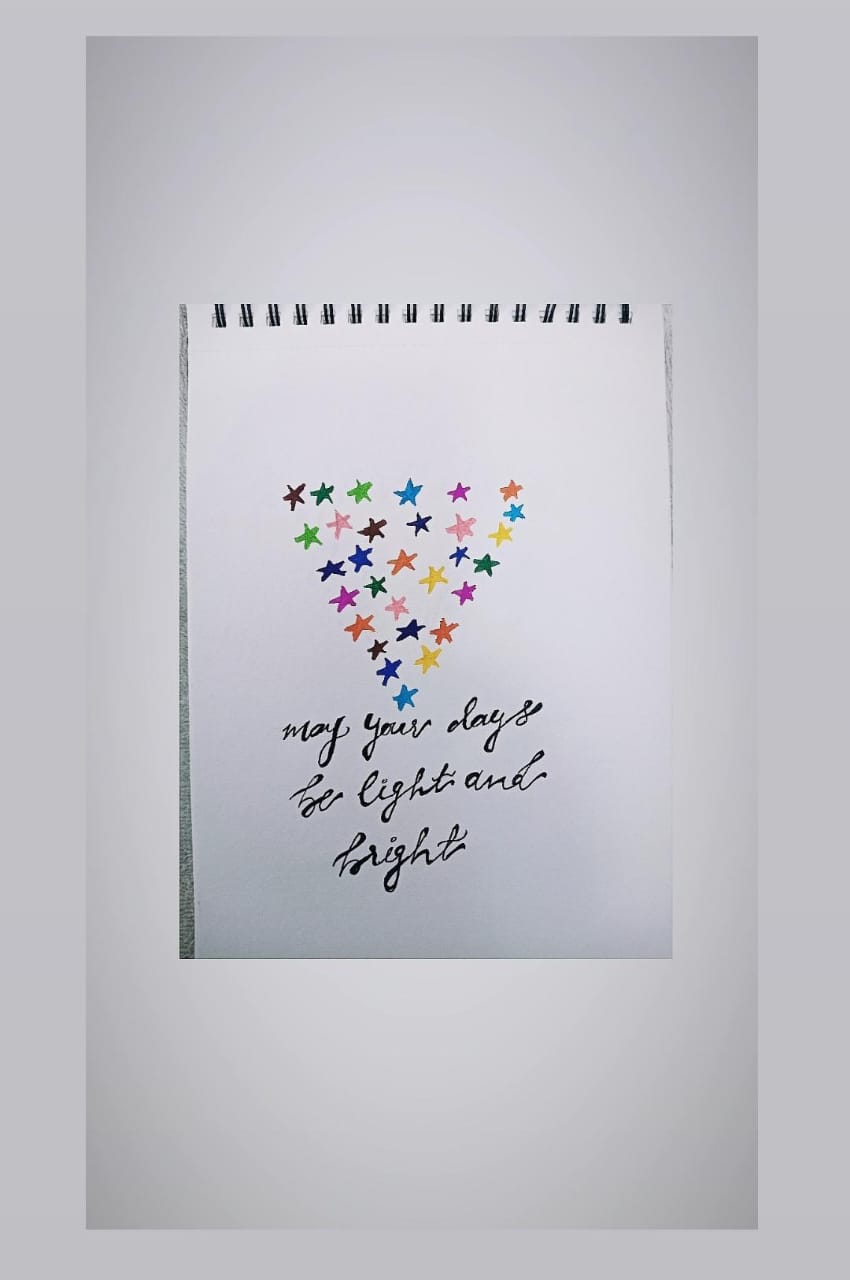 may your days
be light and
bright